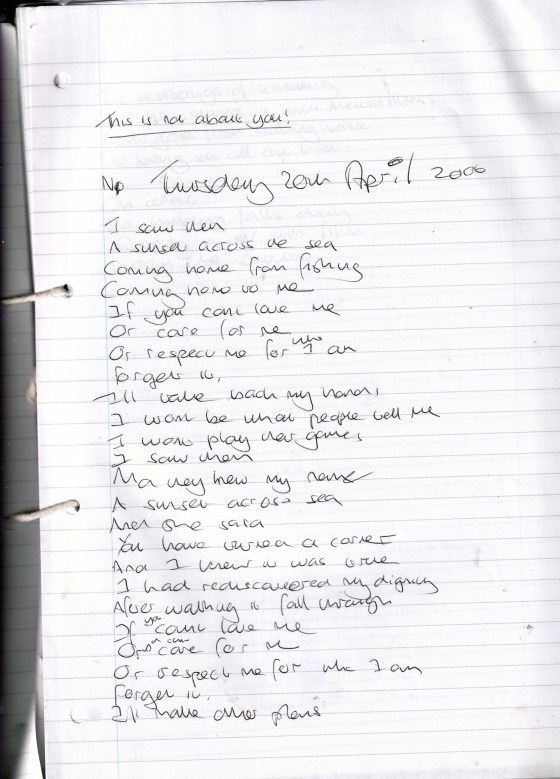 This is not about you!
No Thursday 20th April 2006
I saw then
A sunset across the sea
Coming home from fishing
Coming home to me
If you cant love me
Or care for me
Or respect me for who I am
Forget it,
Ill take back my hand,
I wont be what people tell me
I wont play their games,
I saw then
they knew my name
A sunset across sea
And she said
You have turned a corner
And I knew it was true
I had rediscovered my dignity
After watching it fall through
If you cant love me
Or care for me
Or respect me for who I am
Forget it,
Ill make other plans